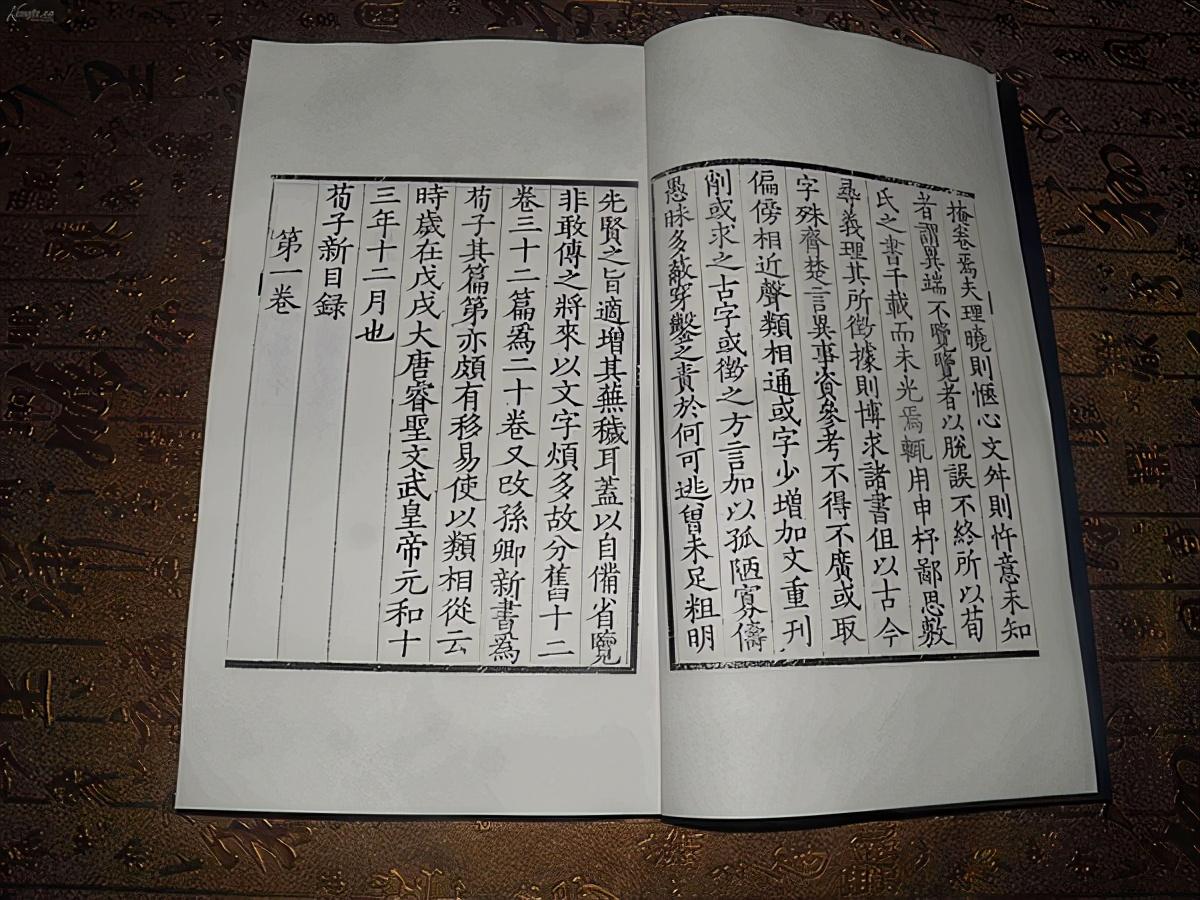 掩卷焉夫理曉則愜心文舛則忤意未知
者謂異端不覽覽者以脫誤不終所以荀
氏之書千載而未光焉輒用申抒鄙思敷
尋義理其所徵據則博求諸書但以古今
字殊齊楚言異事資參考不得不廣或取
偏傍相近聲類相通或字少增加文重刊
削或求之古字或徵之方言加以孤陋寡儔
愚昧多蔽穿鑿之責於何可逃曾未足粗明
先賢之旨適增其蕪穢耳蓋以自備省覽
非敢傳之將來以文字煩多故分舊十二
卷三十二篇爲二十卷又改孫卿新書爲
荀子其篇第亦頗有移易使以類相從云
時歲在戊戌大唐睿聖文武皇帝元和十
三年十二月也
荀子新目録
第一卷